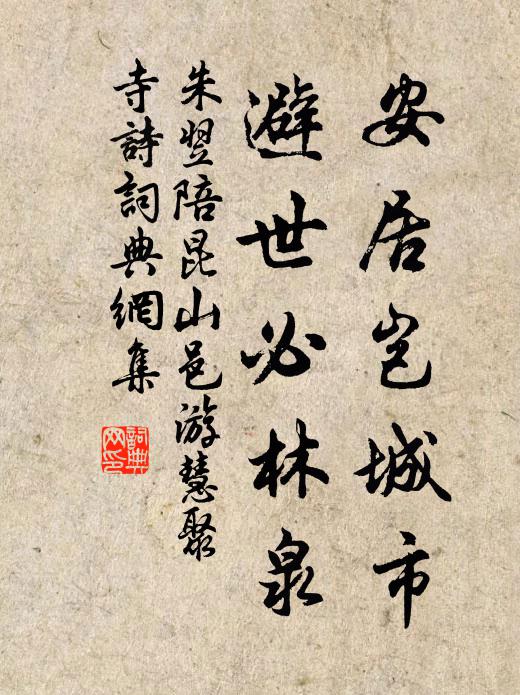 安居豈城市
避世必林泉
朱翌陪昆山邑游慧聚
寺詩詞典網集
詞典网印